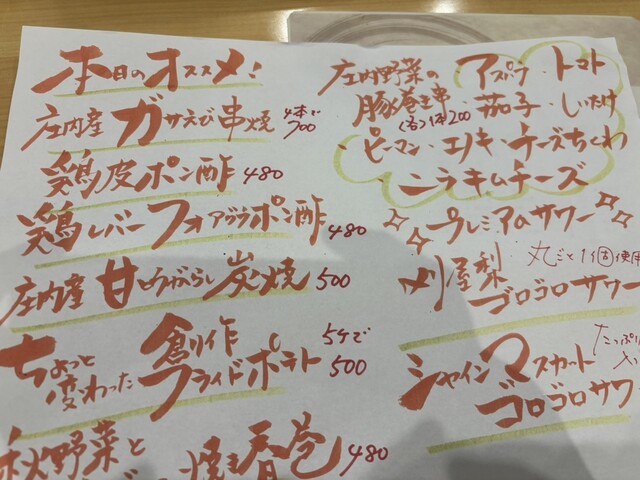 本日のオススメ!
庄内産 ガサえび串焼 4本で700
鶏皮ポン酢 480
鶏レバーフォアグラポン酢 480
庄内産 甘ながらし炭焼 500
ちょっと変わった 創作フライドポテト 5ケで500
秋野菜と
焼き春巻 480
庄内野菜の
豚巻き串 (各)1本200
アスパラ・トマト
・茄子・しいたけ
・ピーマン・エノキ・チーズちくわ
・ニラキムチーズ
プレミアムサワー
刈屋梨 丸ごと1個使用
ゴロゴロサワー
シャインマスカット たっぷり
ゴロゴロサワー